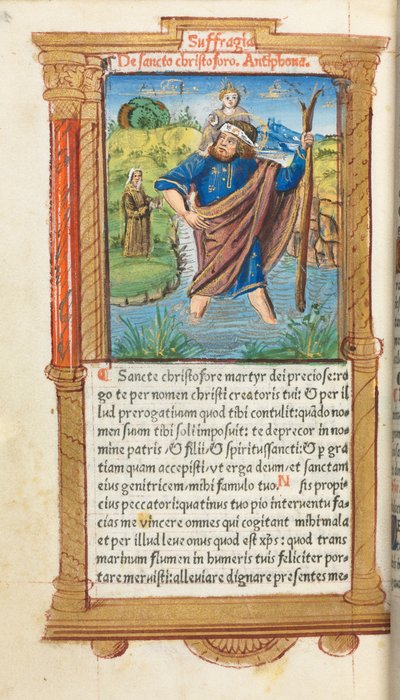 Suffragia
De sancto christoforo. Antiphona.
Sancte christofore martyr dei preciose: ro
go te per nomen christi creatoris tui: & per il
lud prerogatiuum quod tibi contulit: quãdo no
men suum tibi soli imposuit: te deprecor in no
mine patris & filii & spiritussancti: & p grã
tiam quam accepisti vt erga deum et sanctam
eius genitricem mihi famulo tuo. N sis propi
cius peccatori: quatinus tuo pio interuentu fa
cias me vincere omnes qui cogitant mihi mala
et per illud leue onus quod est xp̃s: quod trans
marinum flumen in humeris tuis feliciter por
tare meruisti: alleuiare dignare presentes me-